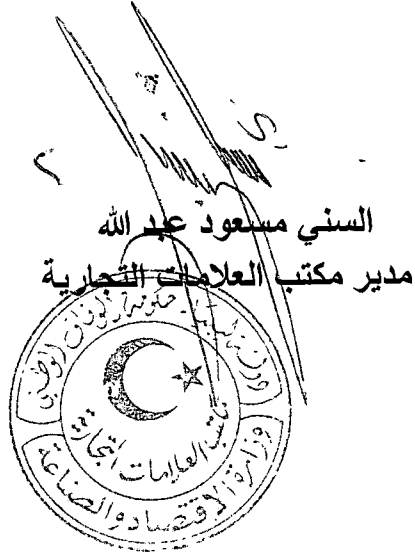 السني مسعود عبد الله
مدير مكتب العلامات التجارية
دولة ليبيا - حكومة الوفاق الوطني
مكتب العلامات التجارية
وزارة الاقتصاد والصناعة